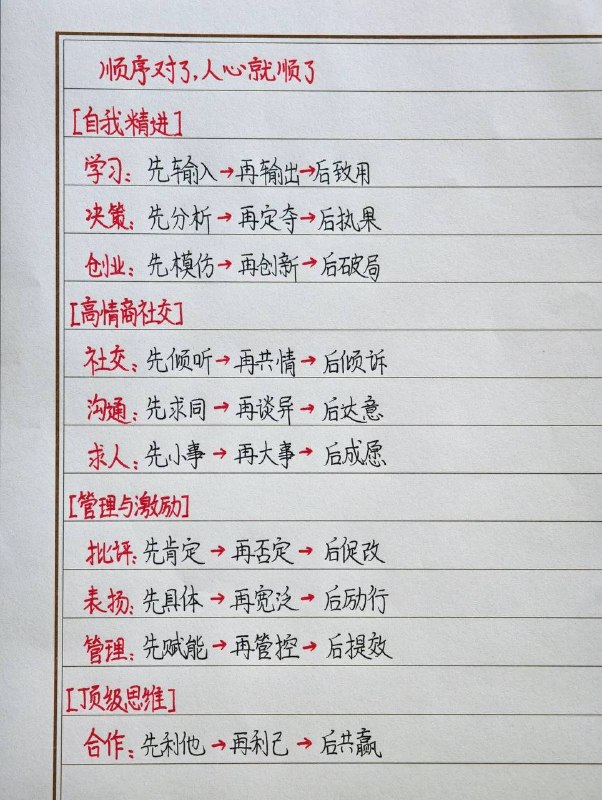 顺序对了,人心就顺了
[自我精进]
学习:先输入→再输出→后致用
决策:先分析→再定夺→后执果
创业:先模仿→再创新→后破局
[高情商社交]
社交:先倾听→再共情→后倾诉
沟通:先求同→再谈异→后达意
求人:先小事→再大事→后成愿
[管理与激励]
批评:先肯定→再否定→后促改
表扬:先具体→再宽泛→后励行
管理:先赋能→再管控→后提效
[顶级思维]
合作:先利他→再利己→后共赢